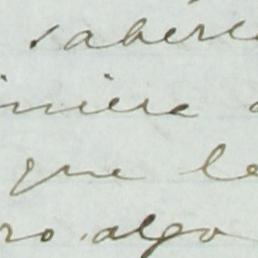 saberl
iniere
que le
ro algo